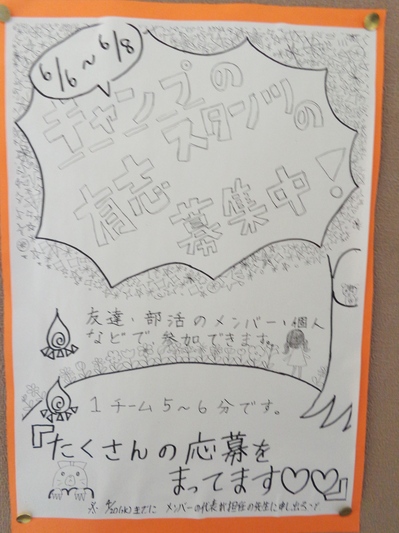 6/6～6/8
キャンプの
スタンツの
有志
募集中!
友達・部活のメンバー、個人
などで参加できます。
1チーム5～6分です。
『たくさんの応募を
まってます♡♡』
までに メンバーの代表が担任の先生に申し出る